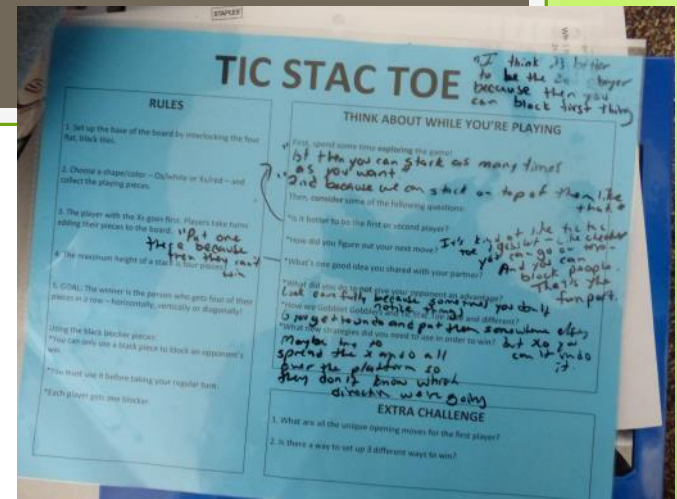 STAPLES
TIC STAC TOE
"I think it's better
to be the 2nd player
because then you
can block first thing
RULES
1. Set up the base of the board by interlocking the four
flat, black tiles.
2. Choose a shape/color – Os/white or Xs/red – and
collect the playing pieces.
3. The player with the Xs goes first. Players take turns
adding their pieces to the board.
"Put one
there because
then they can't
win
4. The maximum height of a stack is four pieces.
5. GOAL: The winner is the person who gets four of their
pieces in a row – horizontally, vertically or diagonally!
Using the black blocker pieces:
*You can only use a black piece to block an opponent's
win.
*You must use it before taking your regular turn.
*Each player gets one blocker.
THINK ABOUT WHILE YOU'RE PLAYING
First, spend some time exploring the game!
"1st then you can stack as many times
as you want"
"2nd because we can stack on top of them like
that"
Then, consider some of the following questions:
*Is it better to be the first or second player?
*How did you figure out your next move?
It's kind of like tic tac
toe
you can go on
And you can
block people.
That's the
fun part.
*What's one good idea you shared with your partner?
*What did you do to not give your opponent an advantage?
Look carefully because sometimes you don't
notice things
*How are Gobblet Gobblers and Tic Stac Toe alike and different?
G you get to undo and put them somewhere else,
but XO you
can't undo
it.
*What new strategies did you need to use in order to win?
Maybe
spread the x and o all
over the platform so
they don't know which
direction we're going
EXTRA CHALLENGE
1. What are all the unique opening moves for the first player?
2. Is there a way to set up 3 different ways to win?